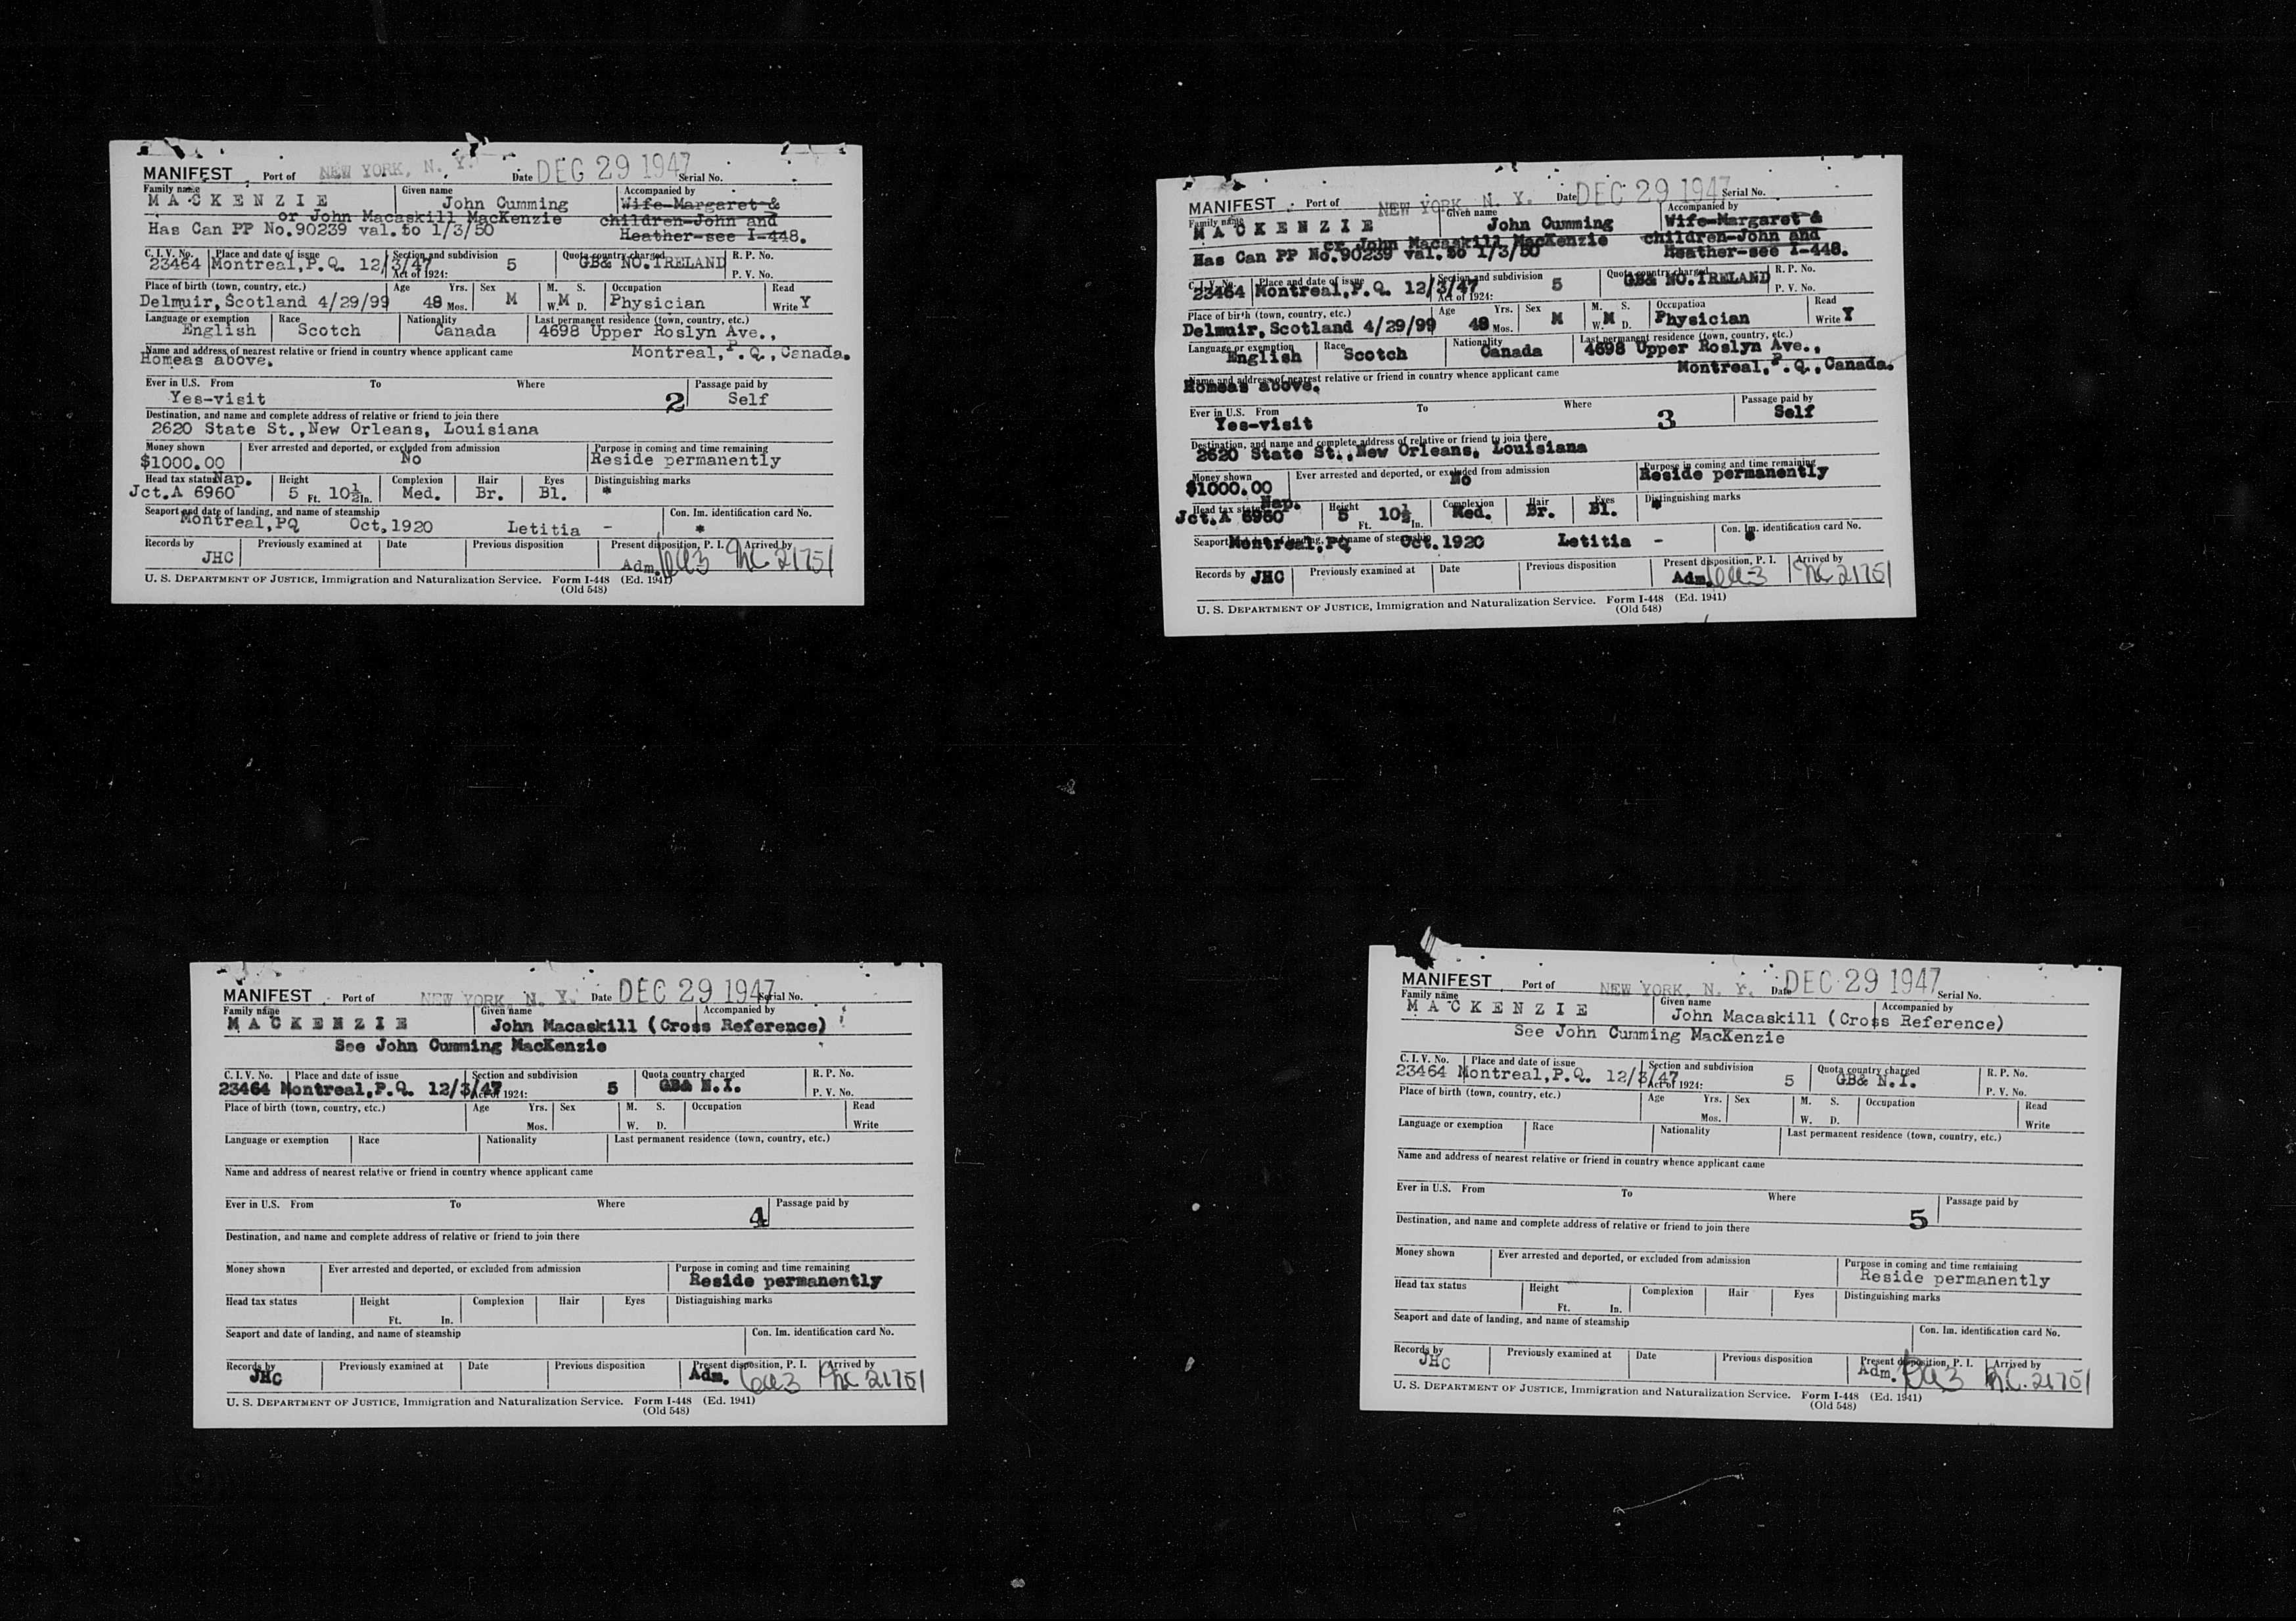 MANIFEST Port of NEW YORK, N. Y. Date DEC 29 1947 Serial No.
Family name Given name Accompanied by
MACKENZIE John Cumming Wife-Margaret &
or John Macaskill MacKenzie children-John and
Has Can PP No.90239 val.to 1/3/50 Heather-see I-448.
C. I. V. No. Place and date of issue Section and subdivision Quota country charged R. P. No.
23464 Montreal,P.Q. 12/3/47 Act of 1924: 5 GB& NO.IRELAND P. V. No.
Place of birth (town, country, etc.) Age Yrs. Sex M. S. Occupation Read
Delmuir,Scotland 4/29/99 48 Mos. M W. M D. Physician Write Y
Language or exemption Race Nationality Last permanent residence (town, country, etc.)
English Scotch Canada 4698 Upper Roslyn Ave.,
Name and address of nearest relative or friend in country whence applicant came Montreal,P.Q.,Canada.
Homeas above.
Ever in U.S. From To Where Passage paid by
Yes-visit 2 Self
Destination, and name and complete address of relative or friend to join there
2620 State St.,New Orleans, Louisiana
Money shown Ever arrested and deported, or excluded from admission Purpose in coming and time remaining
$1000.00 No Reside permanently
Head tax status Nap. Height Complexion Hair Eyes Distinguishing marks
Jct.A 6960 5 Ft. 10½ In. Med. Br. Bl. *
Seaport and date of landing, and name of steamship Con. Im. identification card No.
Montreal,PQ Oct,1920 Letitia - *
Records by Previously examined at Date Previous disposition Present disposition, P. I. Arrived by
JHC Adm. NC 21751
U. S. DEPARTMENT OF JUSTICE, Immigration and Naturalization Service. Form I-448 (Ed. 1941)
(Old 548)
MANIFEST Port of NEW YORK, N. Y. Date DEC 29 1947 Serial No.
Family name Given name Accompanied by
MACKENZIE John Cumming Wife-Margaret &
or John Macaskill MacKenzie children-John and
Has Can PP No.90239 val.to 1/3/50 Heather-see I-448.
C. I. V. No. Place and date of issue Section and subdivision Quota country charged R. P. No.
23464 Montreal,P.Q. 12/3/47 Act of 1924: 5 GB& NO.IRELAND P. V. No.
Place of birth (town, country, etc.) Age Yrs. Sex M. S. Occupation Read
Delmuir,Scotland 4/29/99 48 Mos. M W. M D. Physician Write Y
Language or exemption Race Nationality Last permanent residence (town, country, etc.)
English Scotch Canada 4698 Upper Roslyn Ave.,
Name and address of nearest relative or friend in country whence applicant came Montreal,P.Q.,Canada.
Homeas above.
Ever in U.S. From To Where Passage paid by
Yes-visit 3 Self
Destination, and name and complete address of relative or friend to join there
2620 State St.,New Orleans, Louisiana
Money shown Ever arrested and deported, or excluded from admission Purpose in coming and time remaining
$1000.00 No Reside permanently
Head tax status Nap. Height Complexion Hair Eyes Distinguishing marks
Jct.A 6960 5 Ft. 10½ In. Med. Br. Bl. *
Seaport and date of landing, and name of steamship Con. Im. identification card No.
Montreal,PQ Oct.1920 Letitia - *
Records by Previously examined at Date Previous disposition Present disposition, P. I. Arrived by
JHC Adm. NC 21751
U. S. DEPARTMENT OF JUSTICE, Immigration and Naturalization Service. Form I-448 (Ed. 1941)
(Old 548)
MANIFEST Port of NEW YORK, N. Y. Date DEC 29 1947 Serial No.
Family name Given name Accompanied by
MACKENZIE John Macaskill (Cross Reference)
See John Cumming MacKenzie
C. I. V. No. Place and date of issue Section and subdivision Quota country charged R. P. No.
23464 Montreal,P.Q. 12/3/47 Act of 1924: 5 GB& N.I. P. V. No.
Place of birth (town, country, etc.) Age Yrs. Sex M. S. Occupation Read
Mos. W. D. Write
Language or exemption Race Nationality Last permanent residence (town, country, etc.)
Name and address of nearest relative or friend in country whence applicant came
Ever in U.S. From To Where Passage paid by
4
Destination, and name and complete address of relative or friend to join there
Money shown Ever arrested and deported, or excluded from admission Purpose in coming and time remaining
Reside permanently
Head tax status Height Complexion Hair Eyes Distinguishing marks
Ft. In.
Seaport and date of landing, and name of steamship Con. Im. identification card No.
Records by Previously examined at Date Previous disposition Present disposition, P. I. Arrived by
JHC Adm. NC 21751
U. S. DEPARTMENT OF JUSTICE, Immigration and Naturalization Service. Form I-448 (Ed. 1941)
(Old 548)
MANIFEST Port of NEW YORK, N. Y. Date DEC 29 1947 Serial No.
Family name Given name Accompanied by
MACKENZIE John Macaskill (Cross Reference)
See John Cumming MacKenzie
C. I. V. No. Place and date of issue Section and subdivision Quota country charged R. P. No.
23464 Montreal,P.Q. 12/3/47 Act of 1924: 5 GB& N.I. P. V. No.
Place of birth (town, country, etc.) Age Yrs. Sex M. S. Occupation Read
Mos. W. D. Write
Language or exemption Race Nationality Last permanent residence (town, country, etc.)
Name and address of nearest relative or friend in country whence applicant came
Ever in U.S. From To Where Passage paid by
5
Destination, and name and complete address of relative or friend to join there
Money shown Ever arrested and deported, or excluded from admission Purpose in coming and time remaining
Reside permanently
Head tax status Height Complexion Hair Eyes Distinguishing marks
Ft. In.
Seaport and date of landing, and name of steamship Con. Im. identification card No.
Records by Previously examined at Date Previous disposition Present disposition, P. I. Arrived by
JHC Adm. NC. 21751
U. S. DEPARTMENT OF JUSTICE, Immigration and Naturalization Service. Form I-448 (Ed. 1941)
(Old 548)